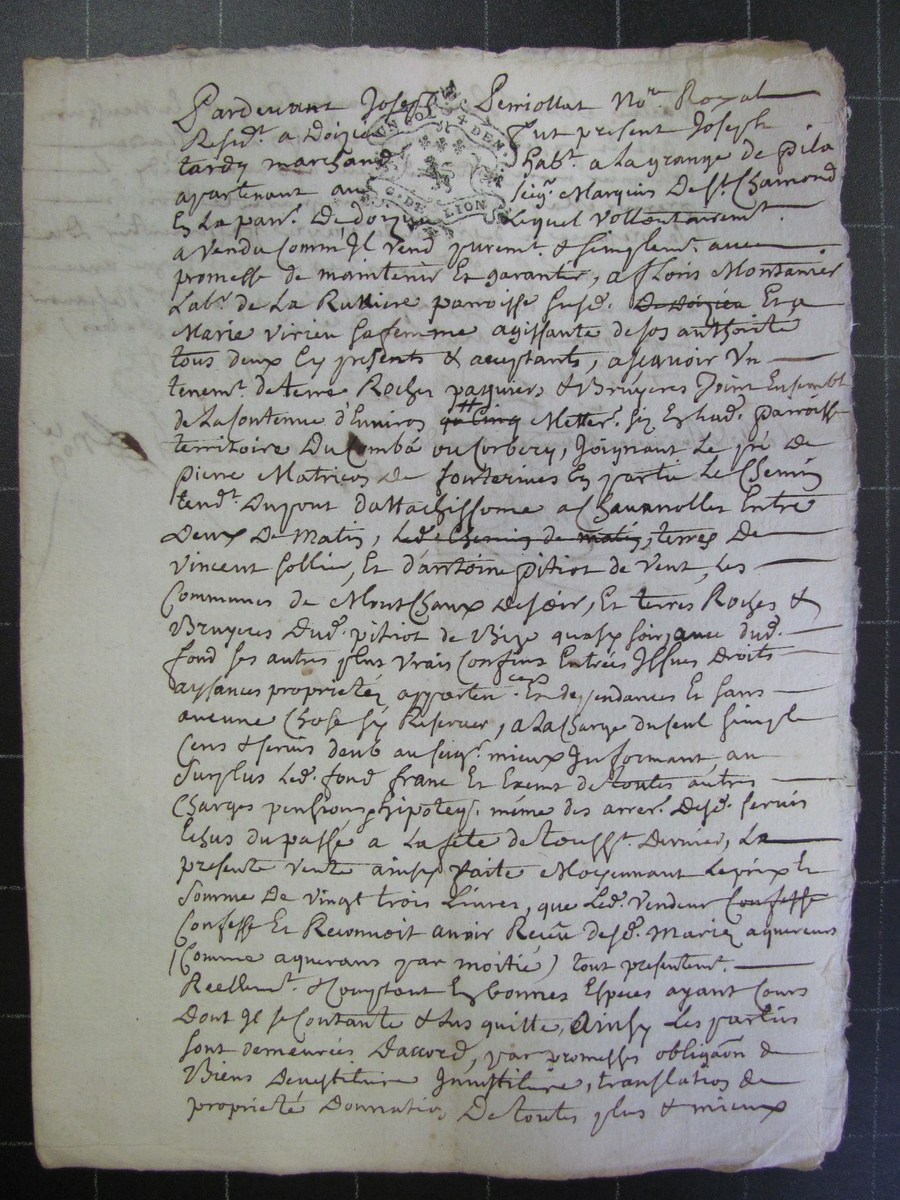 Pardevant Joseph Perriollat No.re Royal
Resid.t a Doizieu Fut present Joseph
tardy marchand habt. a La grange de pila
apartenant au seig.r Marquis De St. Chamond
En La parr.e De doizieu Lequel Vollontairemt.
a Vendu Comm'Il Vend purem.t & simplem.t avec
promesse de maintenir Et garantir, a Flouis Montanier
Lab.r de La Rulliere parroisse susd. De doizieu Et a
Marie Virieu sa femme agissante de son authorité
tous deux Ey presents & acceptants, a scavoir Un
tenem.t de terre Roches paquiers & Bruyeres Joint Ensemble
de La Contenue d'Environ Cinq Metter.s Siz En lad. parroisse
territoire Du Combá ou Corbery, Joignant Le pré de
pierre Matricon De En partie Le Chemin
tend.t Du pont a Entre
Deux De Matin, Led. Chemin de matin, terres De
Vincent Sollier, Et d'antoine pitiot de Vent, Les
Communes de MontChaux De soir, Et terres Roches &
Bruyeres Dud. pitiot de Bize dud.
fond ses autres plus Vrais Confins Entrées Issues Droits
aysances proprietés apparten.ces Et dependances Et sans
aucune Chose sy Reserver, a La Charge du seul simple
Cens & servis deub au seig.r mieux Informant, au
Surplus Led. fond franc Et Exempt de toutes autres
Charges pensions hipoteq. même des arrer. Desd. servis
Echus du passé a La fete de touss.t Dernier, La
presente Vente ainsy faite Moyennant Le prix &
Somme De Vingt trois Livres, que Led. Vendeur Confesse
Confesse Et Reconnoit avoir Receüe desd. Mariez aquereurs
(Comme aquerans par moitié) tout presentem.t
Reellem.t & Comptant En bonnes Especes ayant Cours
Dont Il se Contante & Les quitte, Ainsy Les parties
sont demeurées D'accord, par promesses obligaõn de
Biens Devestiture Investiture, translation de
proprieté Donnation De toutes plus & mieux
DEN
G. DE LION